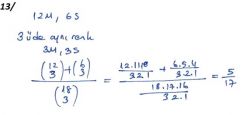 13/
12M, 6S
3 üde aynı renk
3M, 3S
(12 3) + (6 3) / (18 3) = 12.11.10/3.2.1 + 6.5.4/3.2.1 / 18.17.16/3.2.1 = 5/17